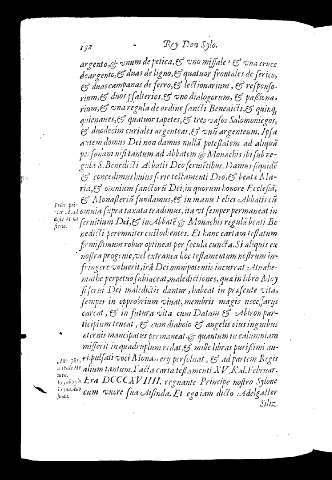 132 Rey Don Sylo.
argento, & unum de petica, & uno missale: & una cruce
de argento, & duas de ligno, & quatuor frontales de serico,
& duos campanas de ferro, & lectionarium, & responso-
rium, & duos psalterios, & uno dialogorum, & passiona-
rium, & una regula de ordine sancti Benedicti, & quinq;
quienanes, & quatuor tapetes, & tres vasos Salomoniegos,
& duodecim curiales argenteas, & VII argenteum. Ipsa
autem domus Dei non damus nulla potestatem ad aliquã
personam nisi tantum ad Abbatem & Monachis ibi sub re-
gula S. Benedicti Abbatis Deo servientibus. Damus siquidẽ
& concedimus huius serie testamenti Deo, & beatæ Ma-
riæ, & omnium sanctorũ Dei, in quorum honore Ecclesiã,
& Monasteriũ fundamus, & in manu Felici Abbatis cũ
omnia supra taxata tradimus, ita ut semper permaneat in
servitium Dei, & in Abbatẽ & Monachis regulã beati Be-
nedicti perenniter custodientes. Et hanc cartam testatum
firmissimum robur optineat per secula cuncta. Si aliquis ex
nostra progenie, vel extranea hoc testamentum nostrum in-
fringere voluerit, irã Dei omnipotentis incurrat Anathe-
mathe perpetuo subiaceat, maledictiones, quæ in libro Moy
si servi Dei maledictis dantur, habeat in præsente vita,
semper in opprobrium vivat, membris magis necessariis
careat, & in futura vita cum Datam & Abiron par-
ticipium teneat, & cum diabolo & angelis eius ingnibus
æternis mancipatus permaneat & quantum in calumniam
miserit in quadruplum redat, & mille libras purissimi au-
ri pulsati voci Monasterij persolvat, & ad partem Regis
aliam tantum. Facta carta testamenti XV. Kal. Februar.
Era DCCCXVIIII. regnante Principe nostro Sylone
cum uxore sua Atisinda. Et ego iam dicto Adelgaster
Siliz